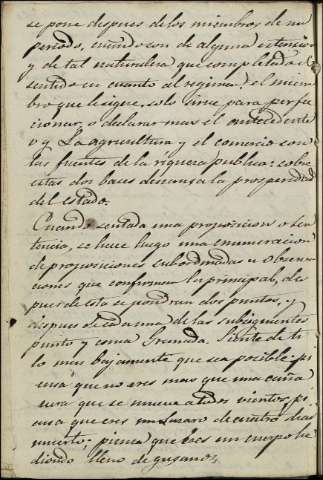 se pone despues de los miembros de un
periodo, cuando son de alguna estencion
y de tal naturalera que completada el
sentido en cuanto al regimen: el miem-
bro que le sigue, solo sirve para perfec-
cionar, o declarar mas el antecedente
v g La agricultura y el comercio son
las fuentes de la riquera publica: sobre
estas dos bases descansa la prosperidad
del estado.
Cuando sentada una proposicion o sen-
tencia, se hace luego una enumeracion
de proposiciones subordinadas u oberva-
ciones que confirmen la principal, des-
pues de esta se pondran dos puntos, y
despues de cada una de las subsiguientes
punto y coma Granada. Siente de ti
lo mas bajamente que sea posible: pi
ensa que no eres mas que una caña
vera que se mueve a todos vientos; pi-
ensa que eres un Lazaro de cuatro dias
muerto; piensa que eres un cuerpo he
diondo lleno de gusanos,